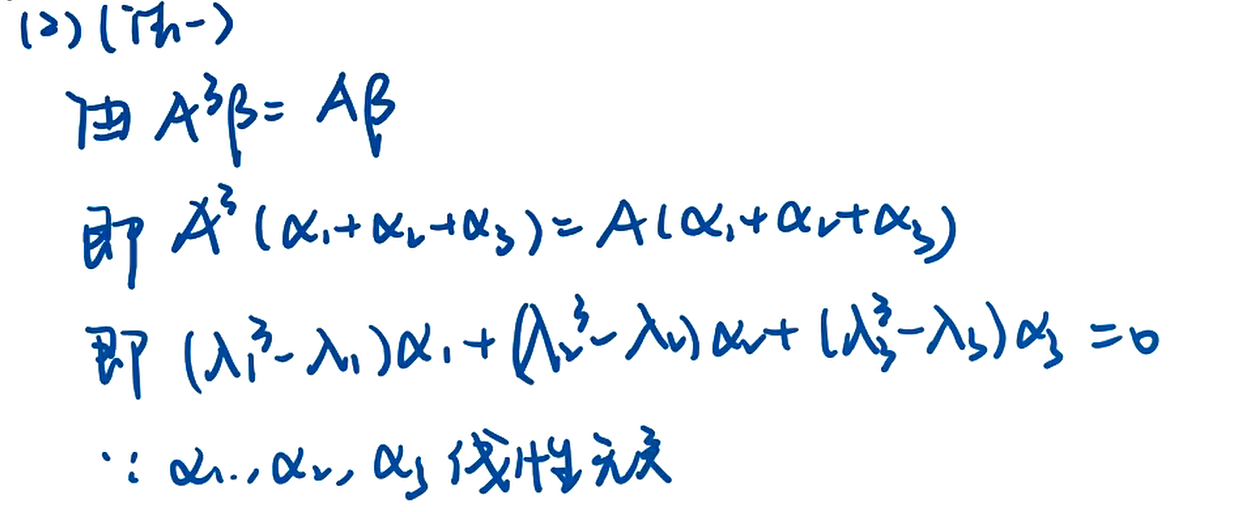 (2) (法一)
由 A³β = Aβ
即 A³(α₁+α₂+α₃) = A(α₁+α₂+α₃)
即 (λ₁³-λ₁)α₁+(λ₂³-λ₂)α₂+(λ₃³-λ₃)α₃ = 0
∵ α₁., α₂, α₃ 线性无关